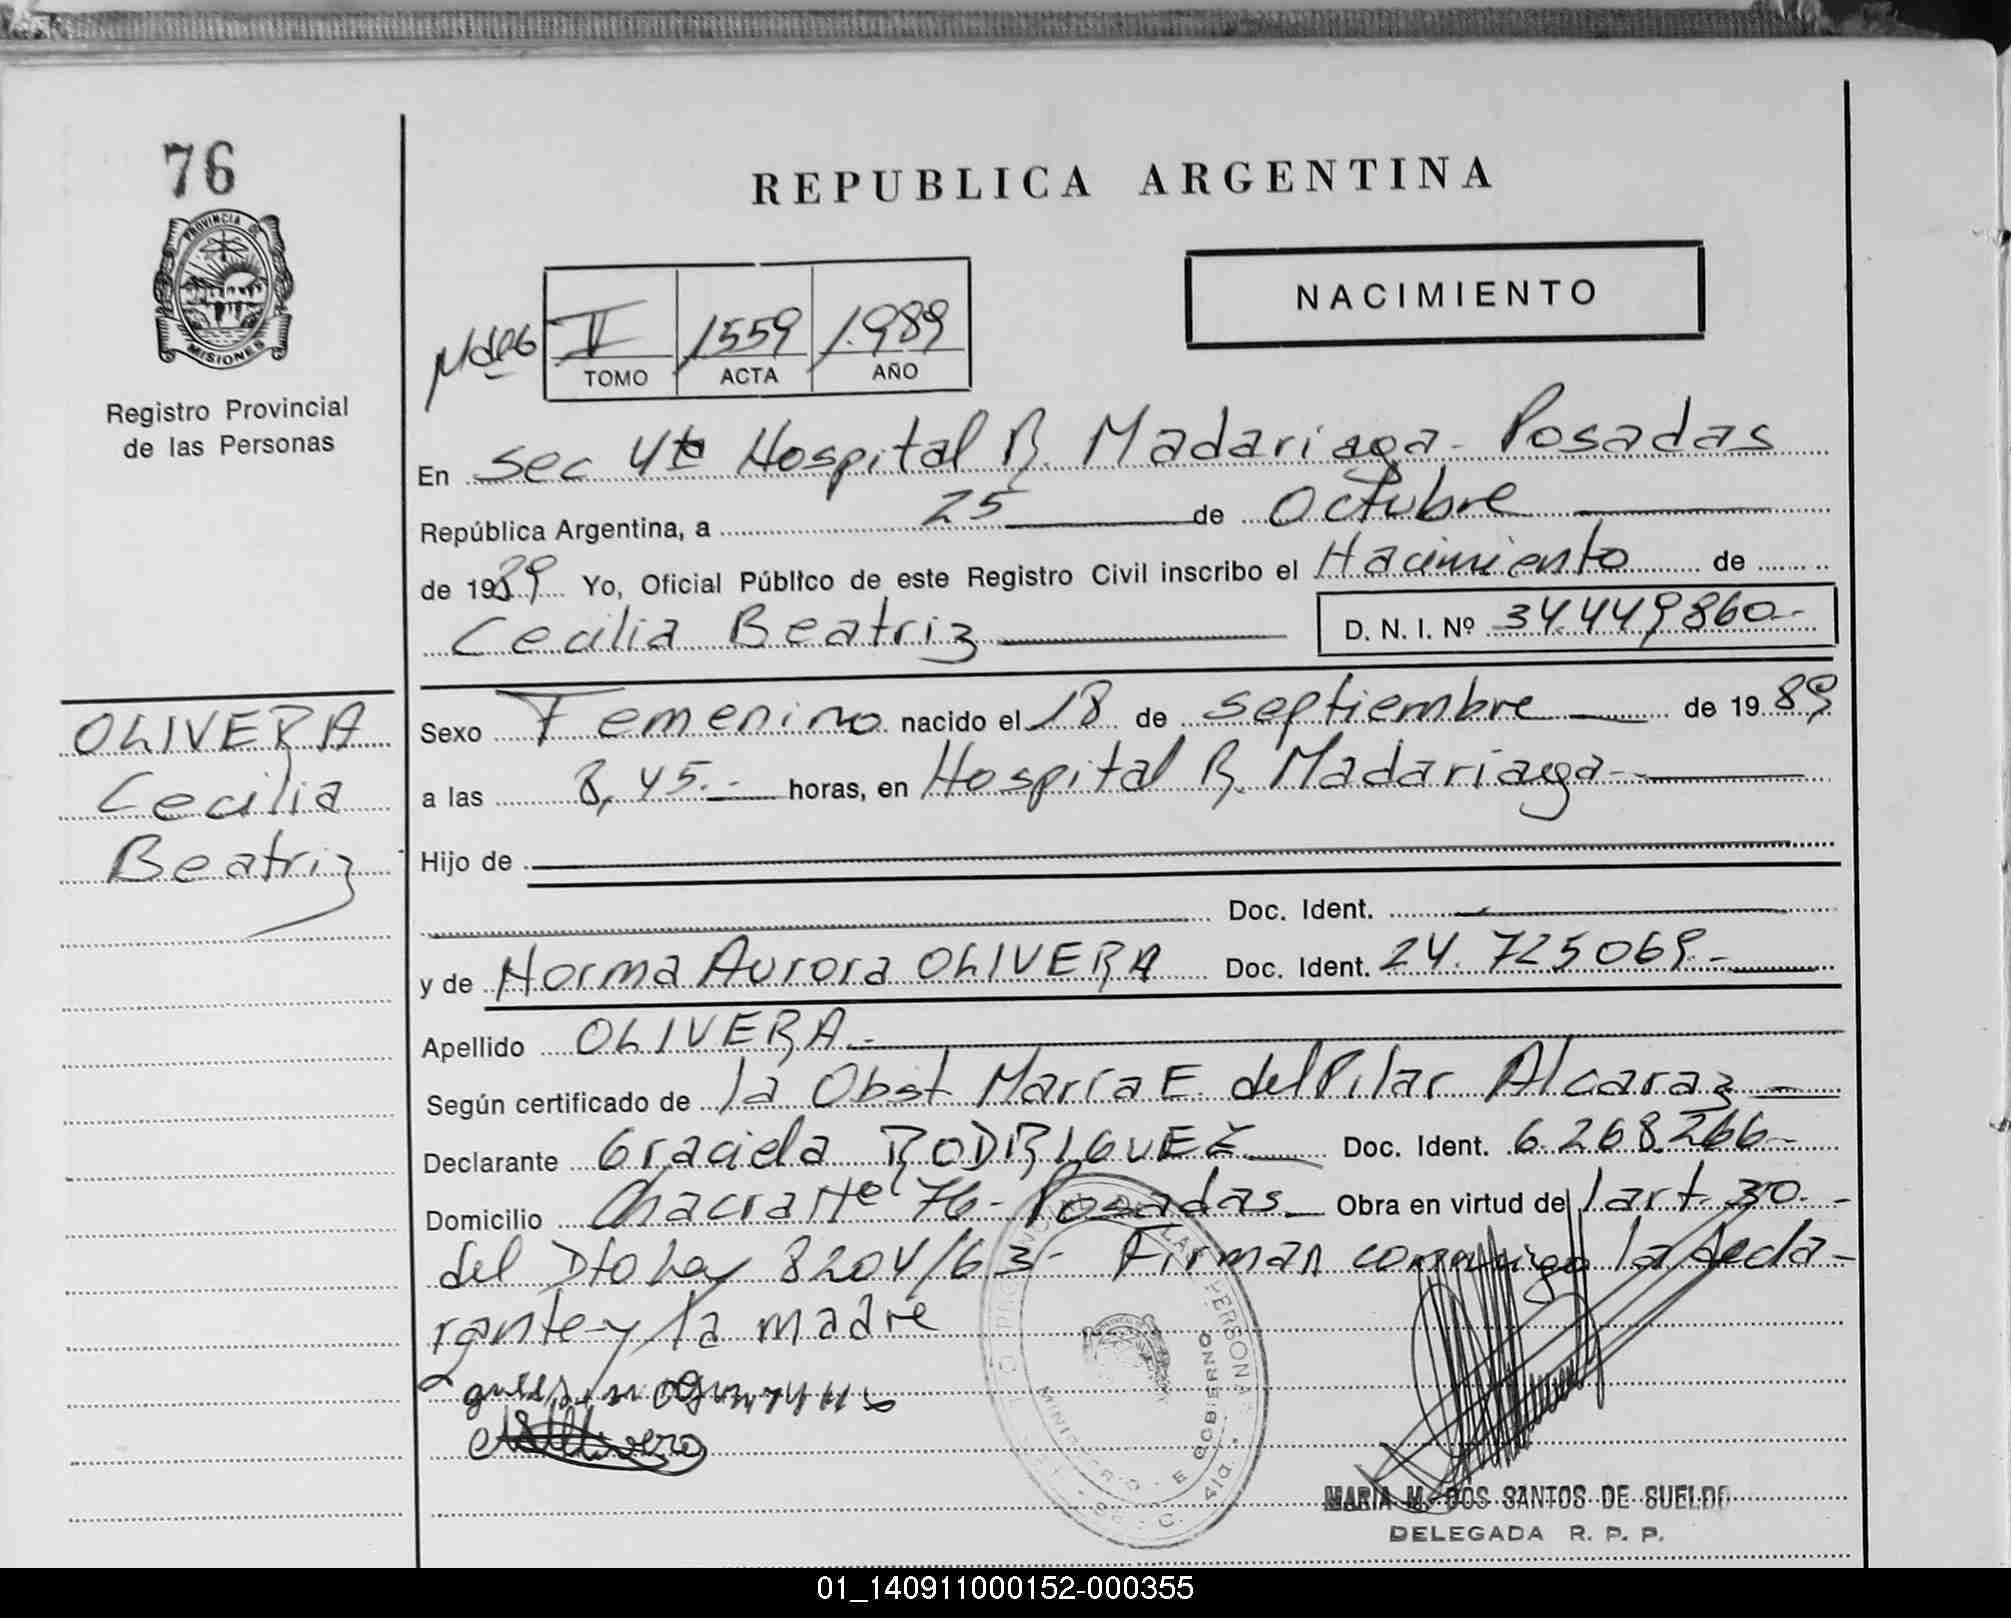 76
REPUBLICA ARGENTINA
PROVINCIA DE
MISIONES
Registro Provincial
de las Personas
NACIMIENTO
II 1559 1.989
TOMO ACTA AÑO
En Sec 4ta Hospital R. Madariaga - Posadas
República Argentina, a 25 de Octubre
de 1989 Yo, Oficial Público de este Registro Civil inscribo el Nacimiento de
Cecilia Beatriz D. N. I. Nº 34.449860-
OLIVERA
Cecilia
Beatriz
Sexo Femenino nacido el 18 de septiembre de 1989
a las 8,45.- horas, en Hospital R. Madariaga-
Hijo de
Doc. Ident.
y de Norma Aurora OLIVERA Doc. Ident. 24.725069.-
Apellido OLIVERA.-
Según certificado de la Obst María E. del Pilar Alcaraz
Declarante Graciela RODRIGUEZ Doc. Ident. 6.268.266-
Domicilio Chacra Nº 76- Posadas Obra en virtud del art. 30.-
del Dto Ley 8204/63- Firman conmigo la decla-
rante y la madre
MARIA M. DOS SANTOS DE SUELDO
DELEGADA R. P. P.
01_140911000152-000355